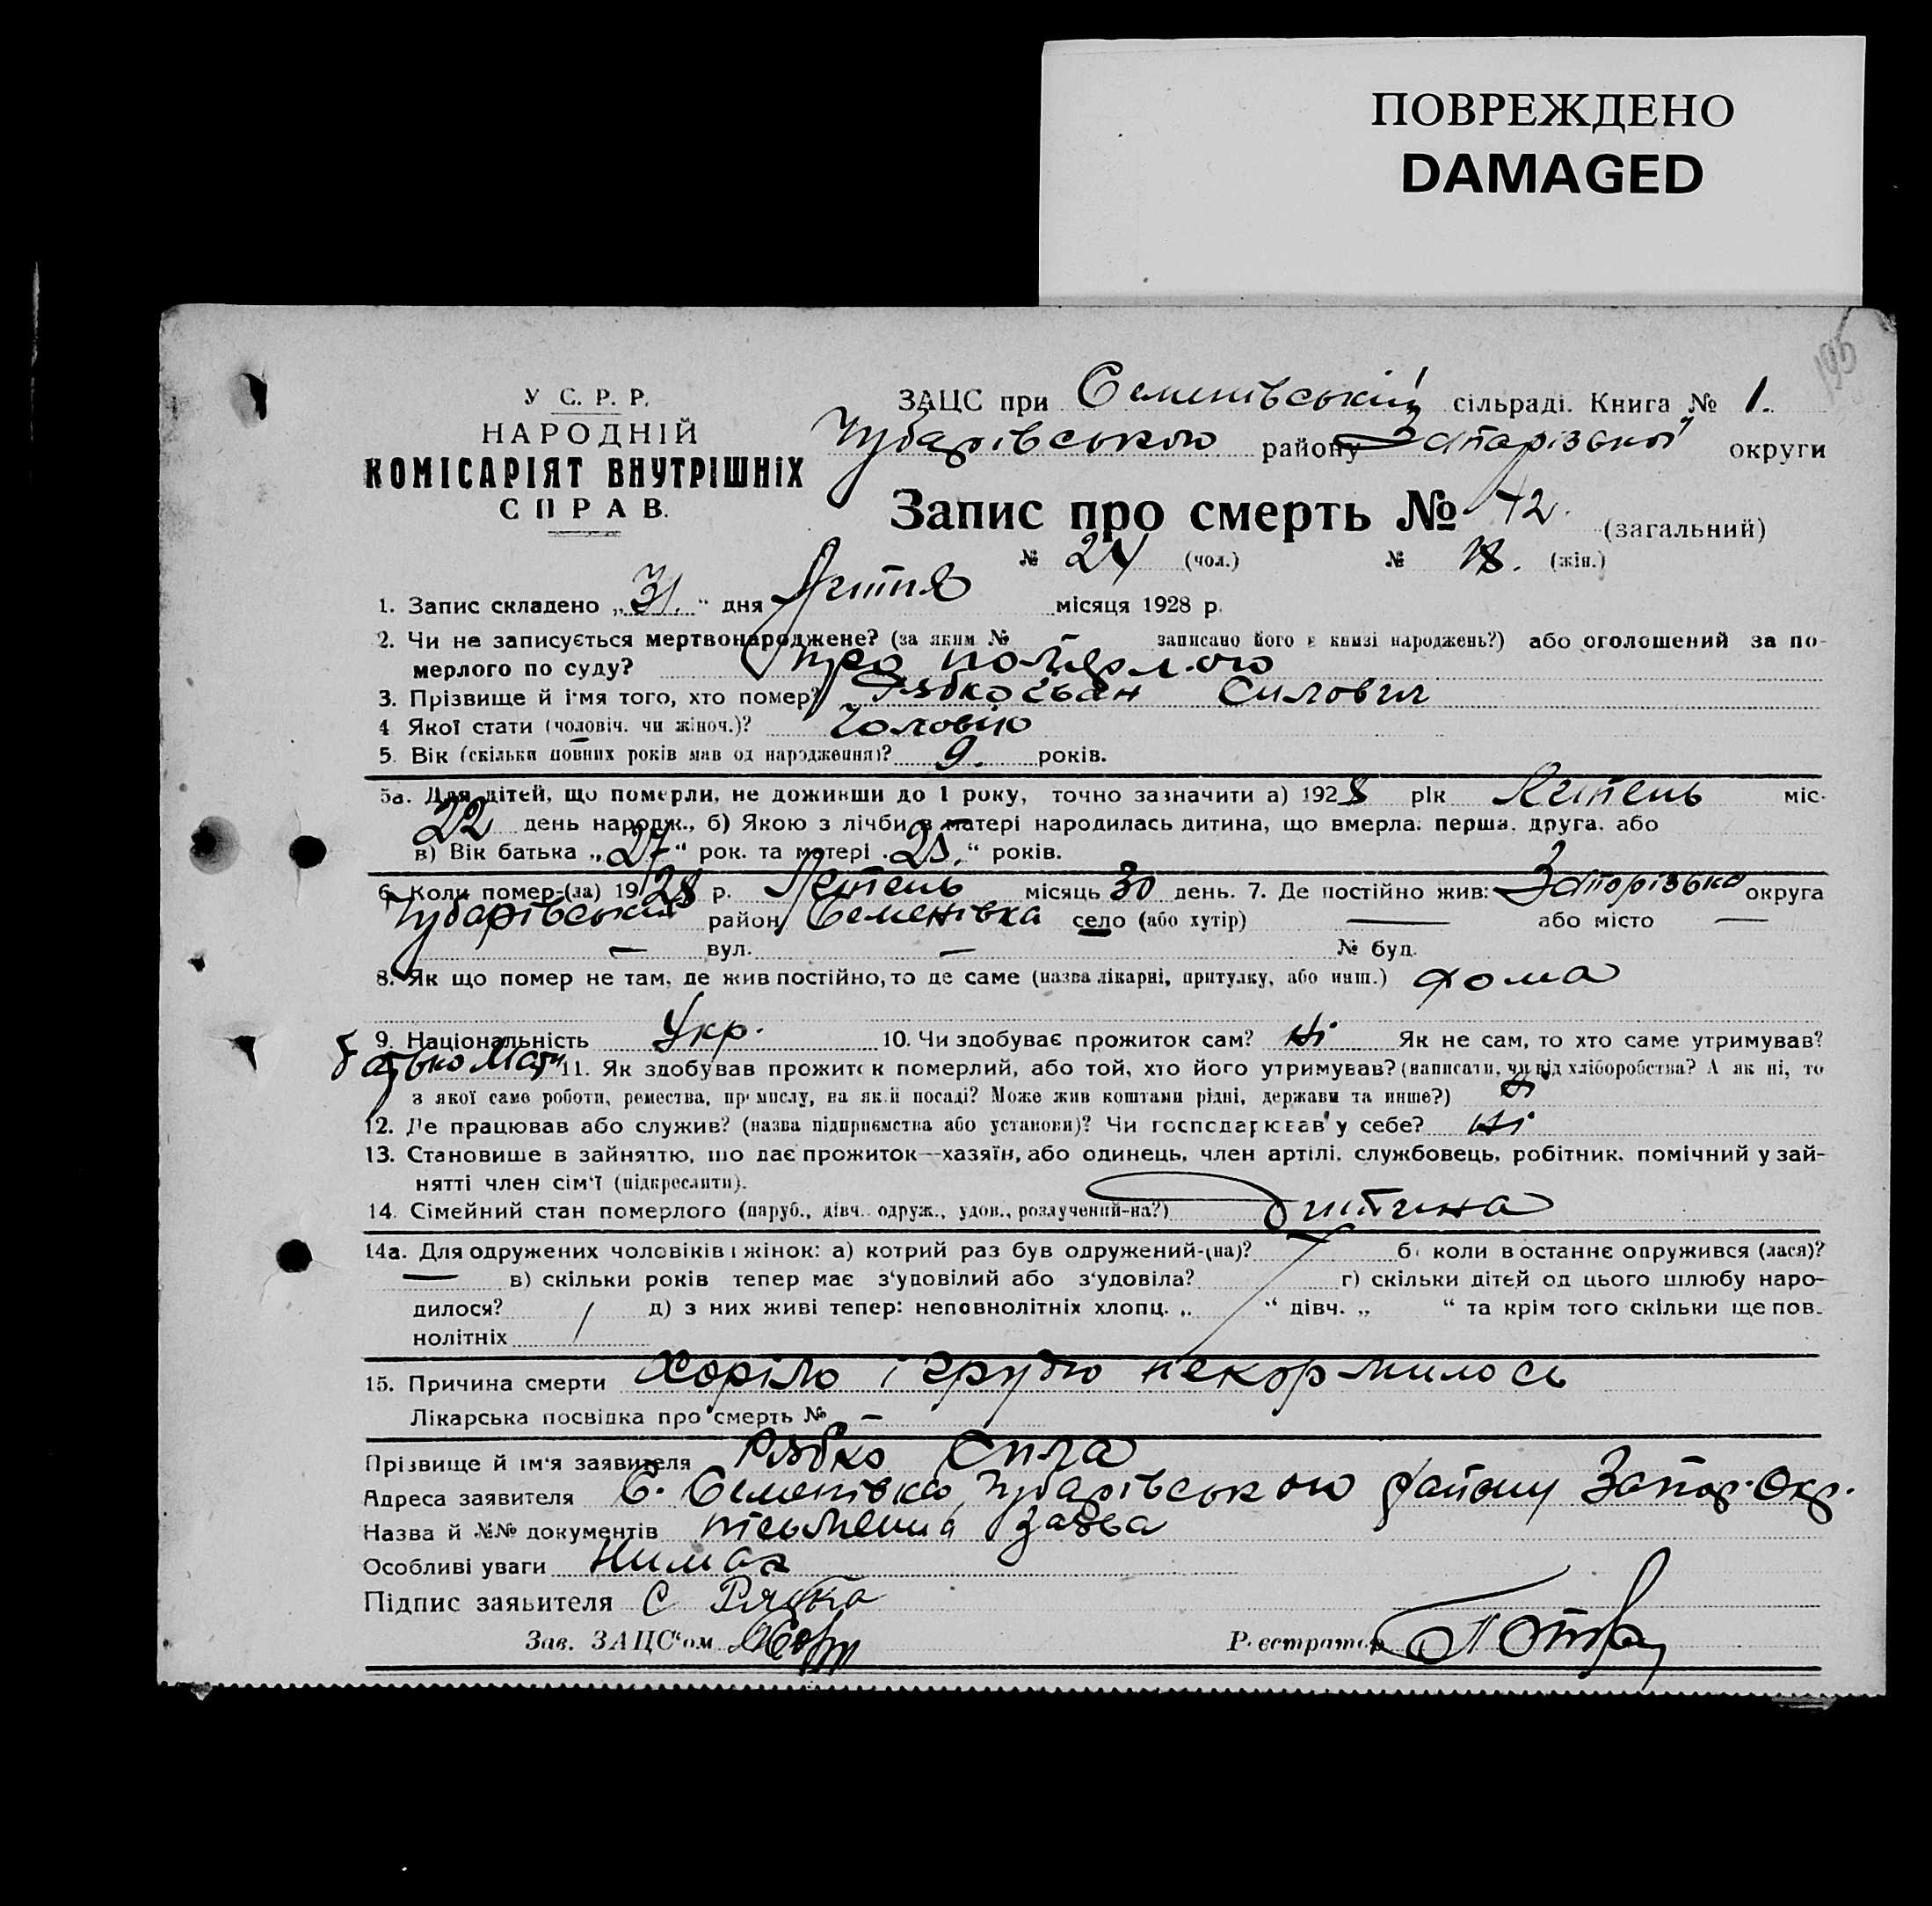 ПОВРЕЖДЕНО
DAMAGED
195
У С. Р. Р.
НАРОДНІЙ
КОМІСАРІЯТ ВНУТРІШНІХ
СПРАВ.
ЗАЦС при Семенівській сільраді. Книга № 1.
Чубарівського району Запорізької округи
Запис про смерть № 42. (загальний)
№ 24 (чол.) № 18. (жін.)
1. Запис складено „31.“ дня Липня місяця 1928 р.
2. Чи не записується мертвонароджене? (за яким № – записано його в книзі народжень?) або оголошений за по-
мерлого по суду? про померлого
3. Прізвище й ім'я того, хто помер? Рябко Іван Силович
4. Якої стати (чоловіч. чи жіноч.)? Чоловічо
5. Вік (скільки повних років мав од народження)? 9. років.
5а. Для дітей, що померли, не доживши до 1 року, точно зазначити а) 1928 рік Липень міс.
22 день народж., б) Якою з лічби в матері народилась дитина, що вмерла: перша, друга, або
в) Вік батька „27“ рок. та матері „25.“ років.
6. Коли помер-(ла) 1928 р. Липень місяць 30 день. 7. Де постійно жив: Запорізька округа
Чубарівський район Семенівка село (або хутір) — або місто —
— вул. — № буд.
8. Як що помер не там, де жив постійно, то де саме (назва лікарні, притулку, або инш.) дома
9. Національність Укр. 10. Чи здобуває прожиток сам? ні Як не сам, то хто саме утримував?
батько Мати 11. Як здобував прожиток померлий, або той, хто його утримував? (написати, чи від хліборобства? А як ні, то
з якої саме роботи, ремества, промислу, на якій посаді? Може жив коштами рідні, держави та инше?) ні
12. Де працював або служив? (назва підприємства або установи)? Чи господарював у себе? ні
13. Становище в зайняттю, що дає прожиток—хазяїн, або одинець, член артілі, службовець, робітник, помічний у зай-
нятті член сім'ї (підкреслити).
14. Сімейний стан померлого (паруб., дівч., одруж., удов., розлучений-на?) Дитина
14а. Для одружених чоловіків і жінок: а) котрий раз був одружений-(на)? б) коли в останнє одружився (лася)?
— в) скільки років тепер має з'удовілий або з'удовіла? г) скільки дітей од цього шлюбу наро-
дилося? д) з них живі тепер: неповнолітніх хлопц. „ “ дівч. „ “ та крім того скільки ще пов-
нолітніх
15. Причина смерти Хоріло і грудю некормилось
Лікарська посвідка про смерть № –
Прізвище й ім'я заявителя Рябко Сила
Адреса заявителя С. Семенівка, Чубарівського району Запор. Окр.
Назва й №№ документів письменна заява
Особливі уваги Нимає
Підпис заявителя С Рябко
Зав. ЗАЦС'ом
Реєстратор